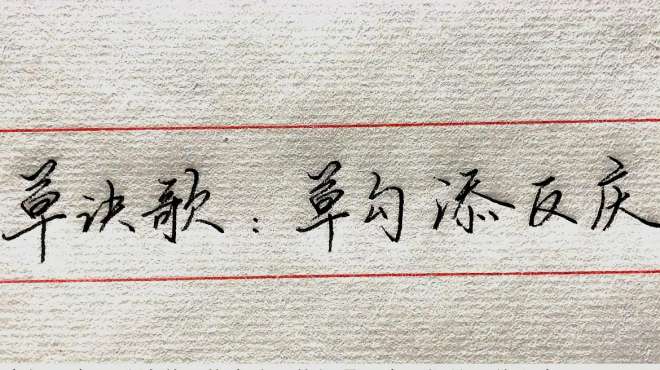 草诀歌：草勾添反庆